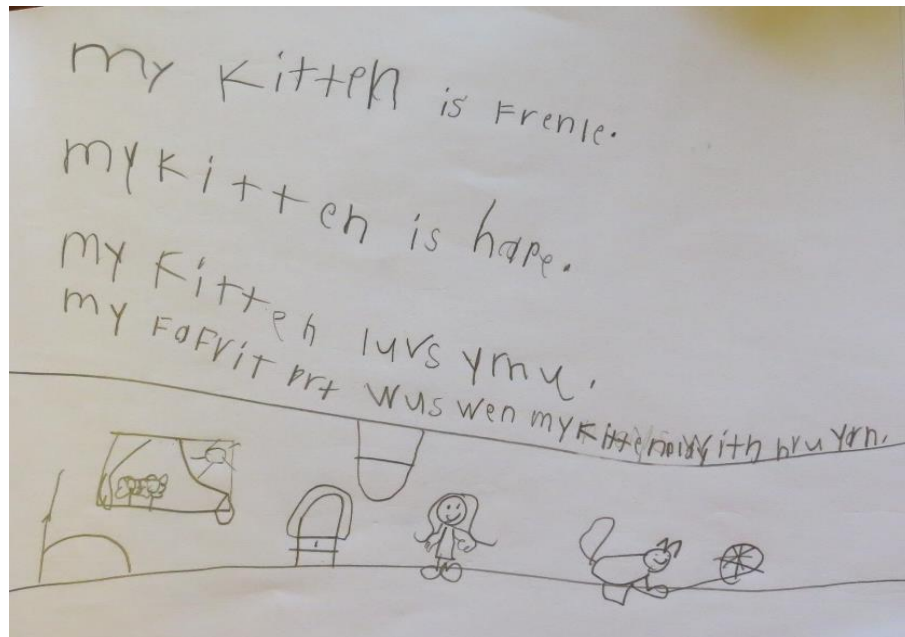 my kitten is Frenle.
my kitten is hape.
my kitten luvs
my FaFrit prt wus wen my kitten with hru yarn.